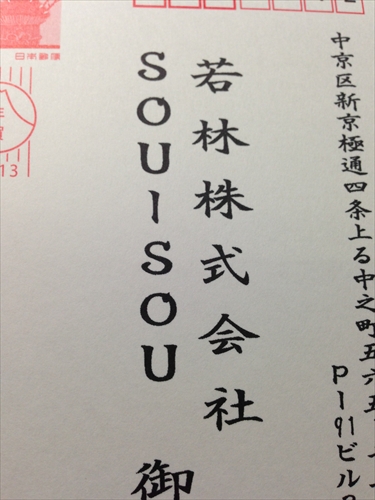 中京区新京極通四条上る中之町五六五
P-91ビル
若林株式会社
SOUISOU 御
日本郵便
年賀
13